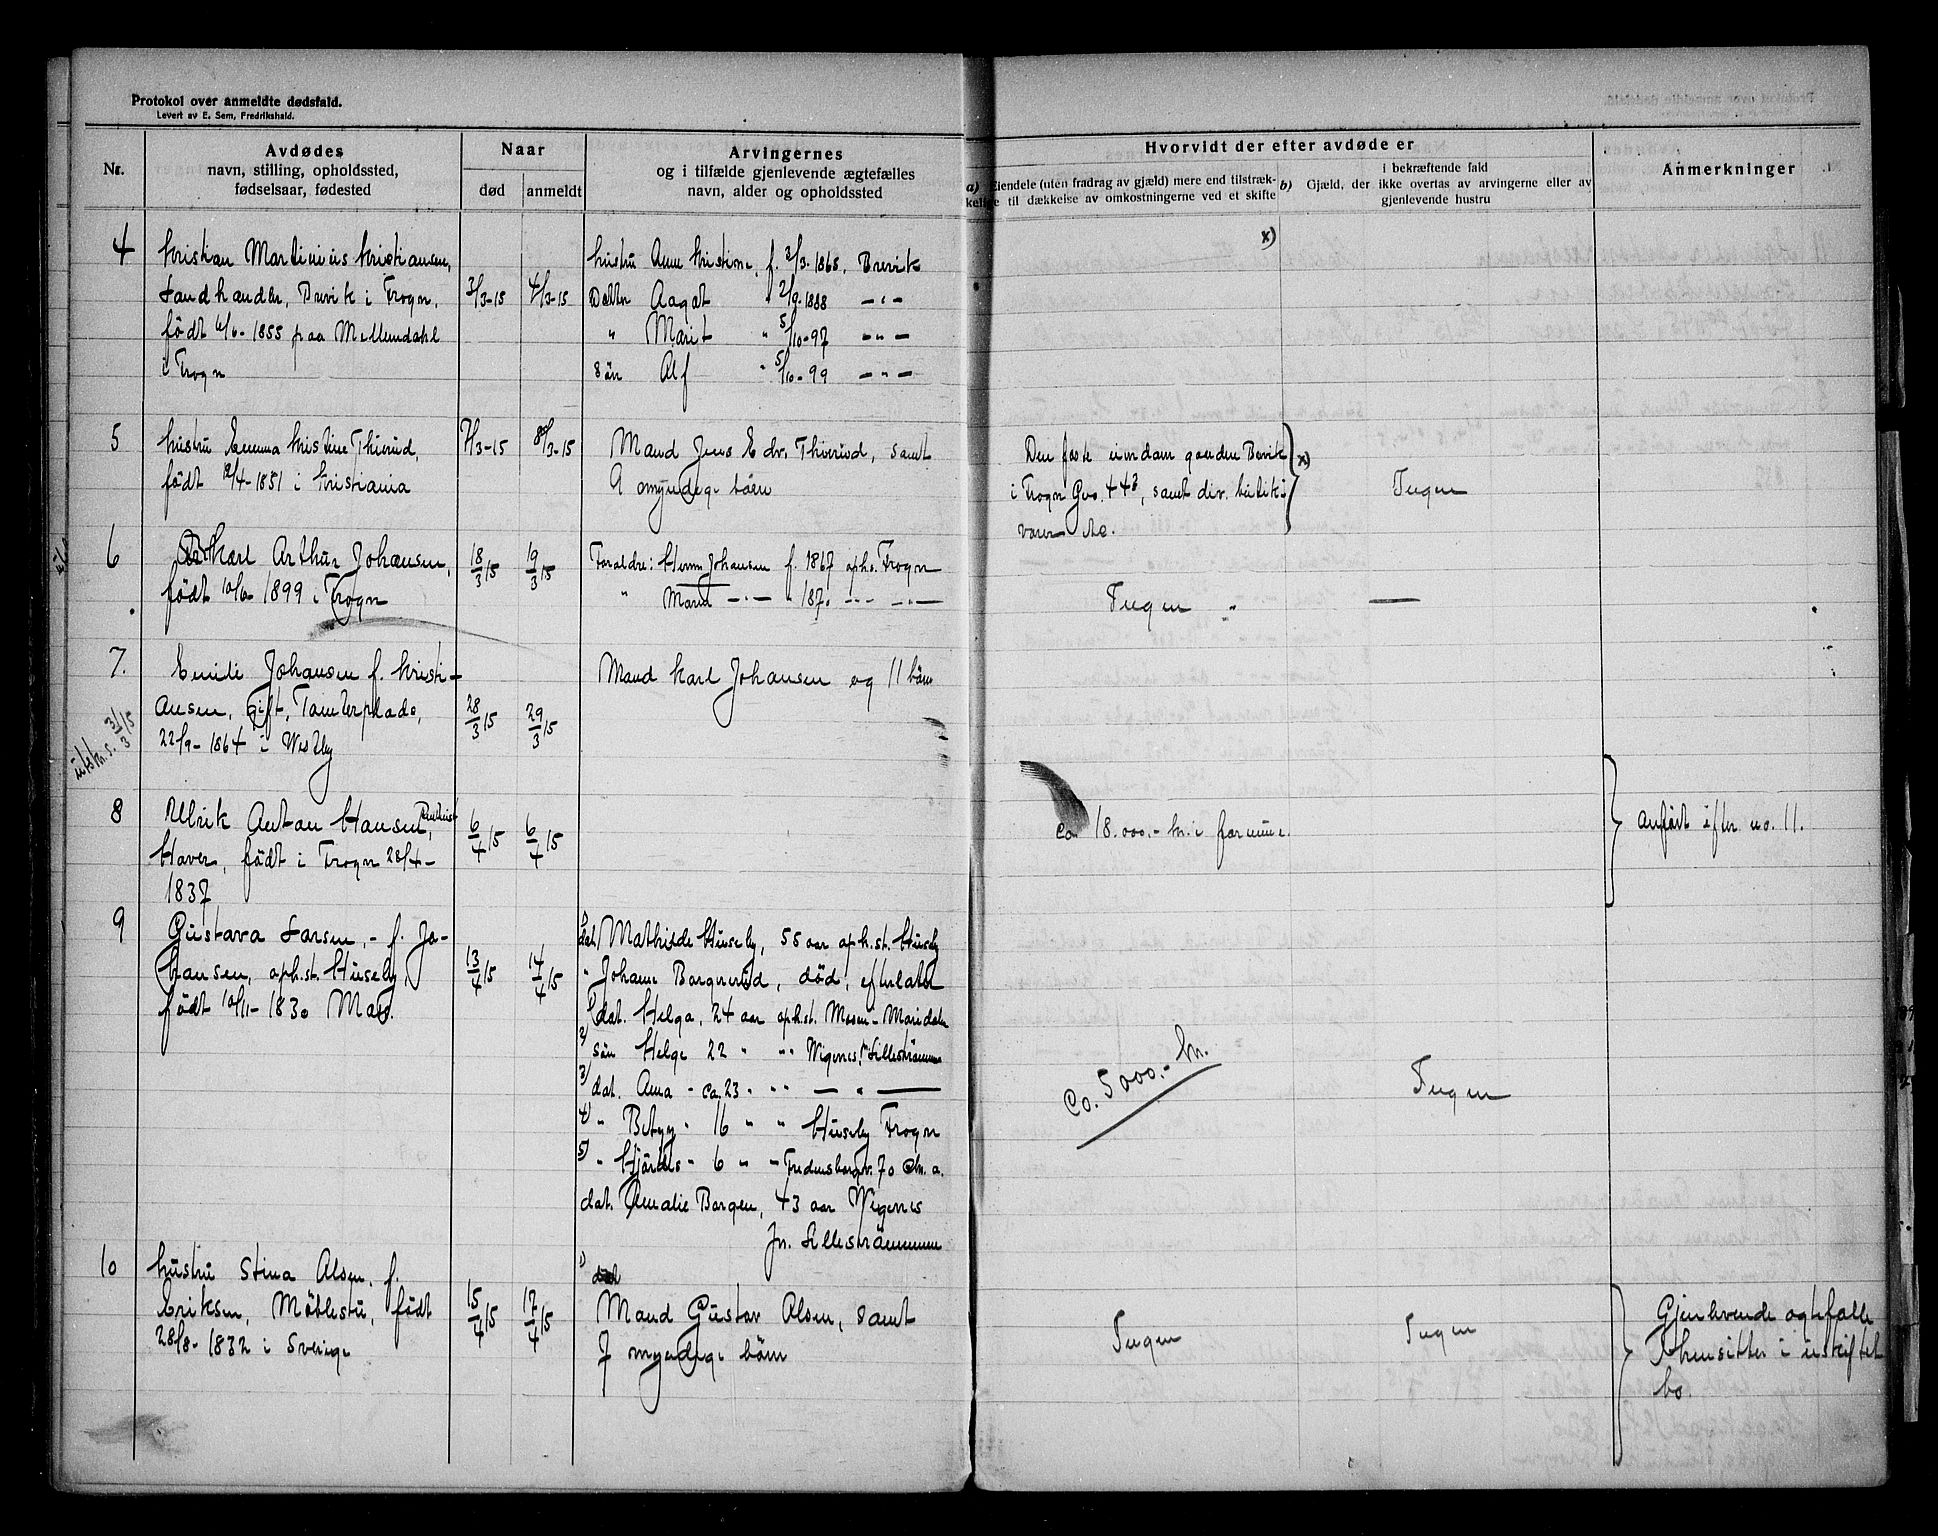 Protokol over anmeldte dødsfald.
Levert av E. Sem, Fredrikshald.
Nr.
Avdødes
navn, stilling, opholdssted,
fødselsaar, fødested
Naar
død
anmeldt
Arvingernes
og i tilfælde gjenlevende ægtefælles
navn, alder og opholdssted
Hvorvidt der efter avdøde er
a) Eiendele (uten fradrag av gjæld) mere end tilstræk-
kelige til dækkelse av omkostningerne ved et skifte
b) i bekræftende fald
Gjæld, der ikke overtas av arvingerne eller av
gjenlevende hustru
Anmerkninger
4
Kristian Martinius Kristiansen,
Landhandler, Brevik i Frogn,
født 1855 paa Mellumdahl
i Frogn
3/3-15
4/3-15
hustru Anne Kristine, f. 2/3.1865. Brevik
Datter Aagot " 2/9-1888 -"-
" Marit " 5/10-97 -"-
Søn Alf " 5/10-99 -"-
x)
5
hustru Emma Kristine Thirud,
født 12/4-1851 i Kristiania
7/3-15
8/3-15
Mand Jens Edv. Thirud, samt
9 myndige børn
Den faste eiendom Brevik
i Frogn Gno. 44, samt div. butik-
varer etc.
x)
Ingen
6
Karl Arthur Johansen,
født 10/6-1899 i Frogn
18/3 15
19/3 15
Foraldre: Herm. Johansen f. 1867 opho. Frogn
" Maren -"- " 1870 -"- -"-
Ingen " —
7.
Emilie Johansen f. Kristi-
ansen, gift, Tømterplads,
22/9-1864 i Westby
28/3 15
29/3 15
Mand Karl Johansen og 11 børn
utskr. s. 31/3 15
8
Ulrik Anton Hansen,
Haver, født i Frogn 28/4-
1837
6/4 15
6/4 15
ca. 18.000.- kr. i formue.
Anført efter no. 11.
9
Gustava Larsen, - f. Jo-
hansen, oph.st. Huseby,
født 10/11-1830 Moss.
13/4 15
14/4 15
1) dat. Mathilde Huseby, 55 aar oph.st. Huseby
" Johanne Borgerud, død, efterlater
1) dat. Helga, 24 aar oph.st. Mosen - Maridalen
2) søn Helge 22 " " Wigernes, Lillestrømmen
3) dat. Anna - ca. 23 " " — " —
4) " Betzy " 16 " " Huseby Frogn
5) " Hjørdis " 6 " " Fredensborgv. 70 Chr.a.
dat. Amalie Borgen, 43 aar Wigernes
pr. Lillestrømmen
Co. 5000.- kr.
Ingen
10
hustru Stina Olsen, f.
Eriksen, født
28/8-1832 i Sverige
15/4 15
17/4 15
1)
Mand Gustav Olsen, samt
7 myndige børn
Ingen
Ingen
Gjenlevende ægtefælle
hensitter i uskiftet
bo.